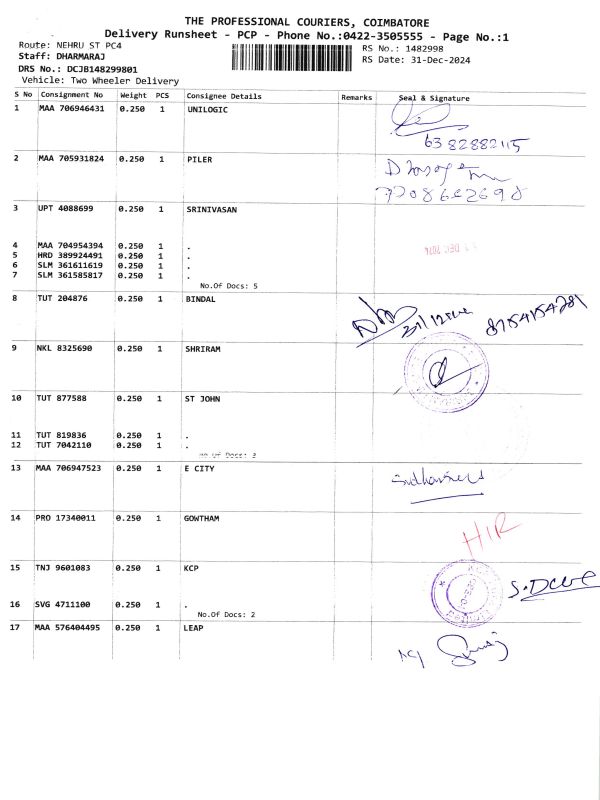 THE PROFESSIONAL COURIERS, COIMBATORE
Delivery Runsheet - PCP - Phone No.:0422-3505555 - Page No.:1
Route: NEHRU ST PC4 RS No.: 1482998
Staff: DHARMARAJ RS Date: 31-Dec-2024
DRS No.: DCJB148299801
Vehicle: Two Wheeler Delivery
S No Consignment No Weight PCS Consignee Details Remarks Seal & Signature
1 MAA 706946431 0.250 1 UNILOGIC
6382882115
2 MAA 705931824 0.250 1 PILER
3 UPT 4088699 0.250 1 SRINIVASAN
4 MAA 704954394 0.250 1 .
5 HRD 389924491 0.250 1 .
6 SLM 361611619 0.250 1 .
7 SLM 361585817 0.250 1 .
No.Of Docs: 5
8 TUT 204876 0.250 1 BINDAL
8754154781
9 NKL 8325690 0.250 1 SHRIRAM
10 TUT 877588 0.250 1 ST JOHN
11 TUT 819836 0.250 1 .
12 TUT 7042110 0.250 1 .
No.Of Docs: 3
13 MAA 706947523 0.250 1 E CITY
14 PRO 17340011 0.250 1 GOWTHAM
HIR
15 TNJ 9601083 0.250 1 KCP
16 SVG 4711100 0.250 1 .
No.Of Docs: 2
17 MAA 576404495 0.250 1 LEAP